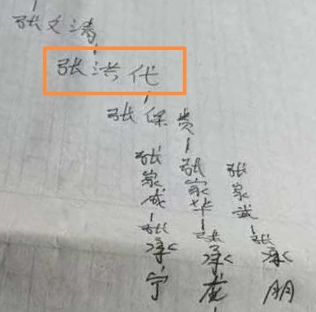 张文清
张洪代
张保贵
张家成 张承宁
张家华 张承龙
张家诚 张承朋